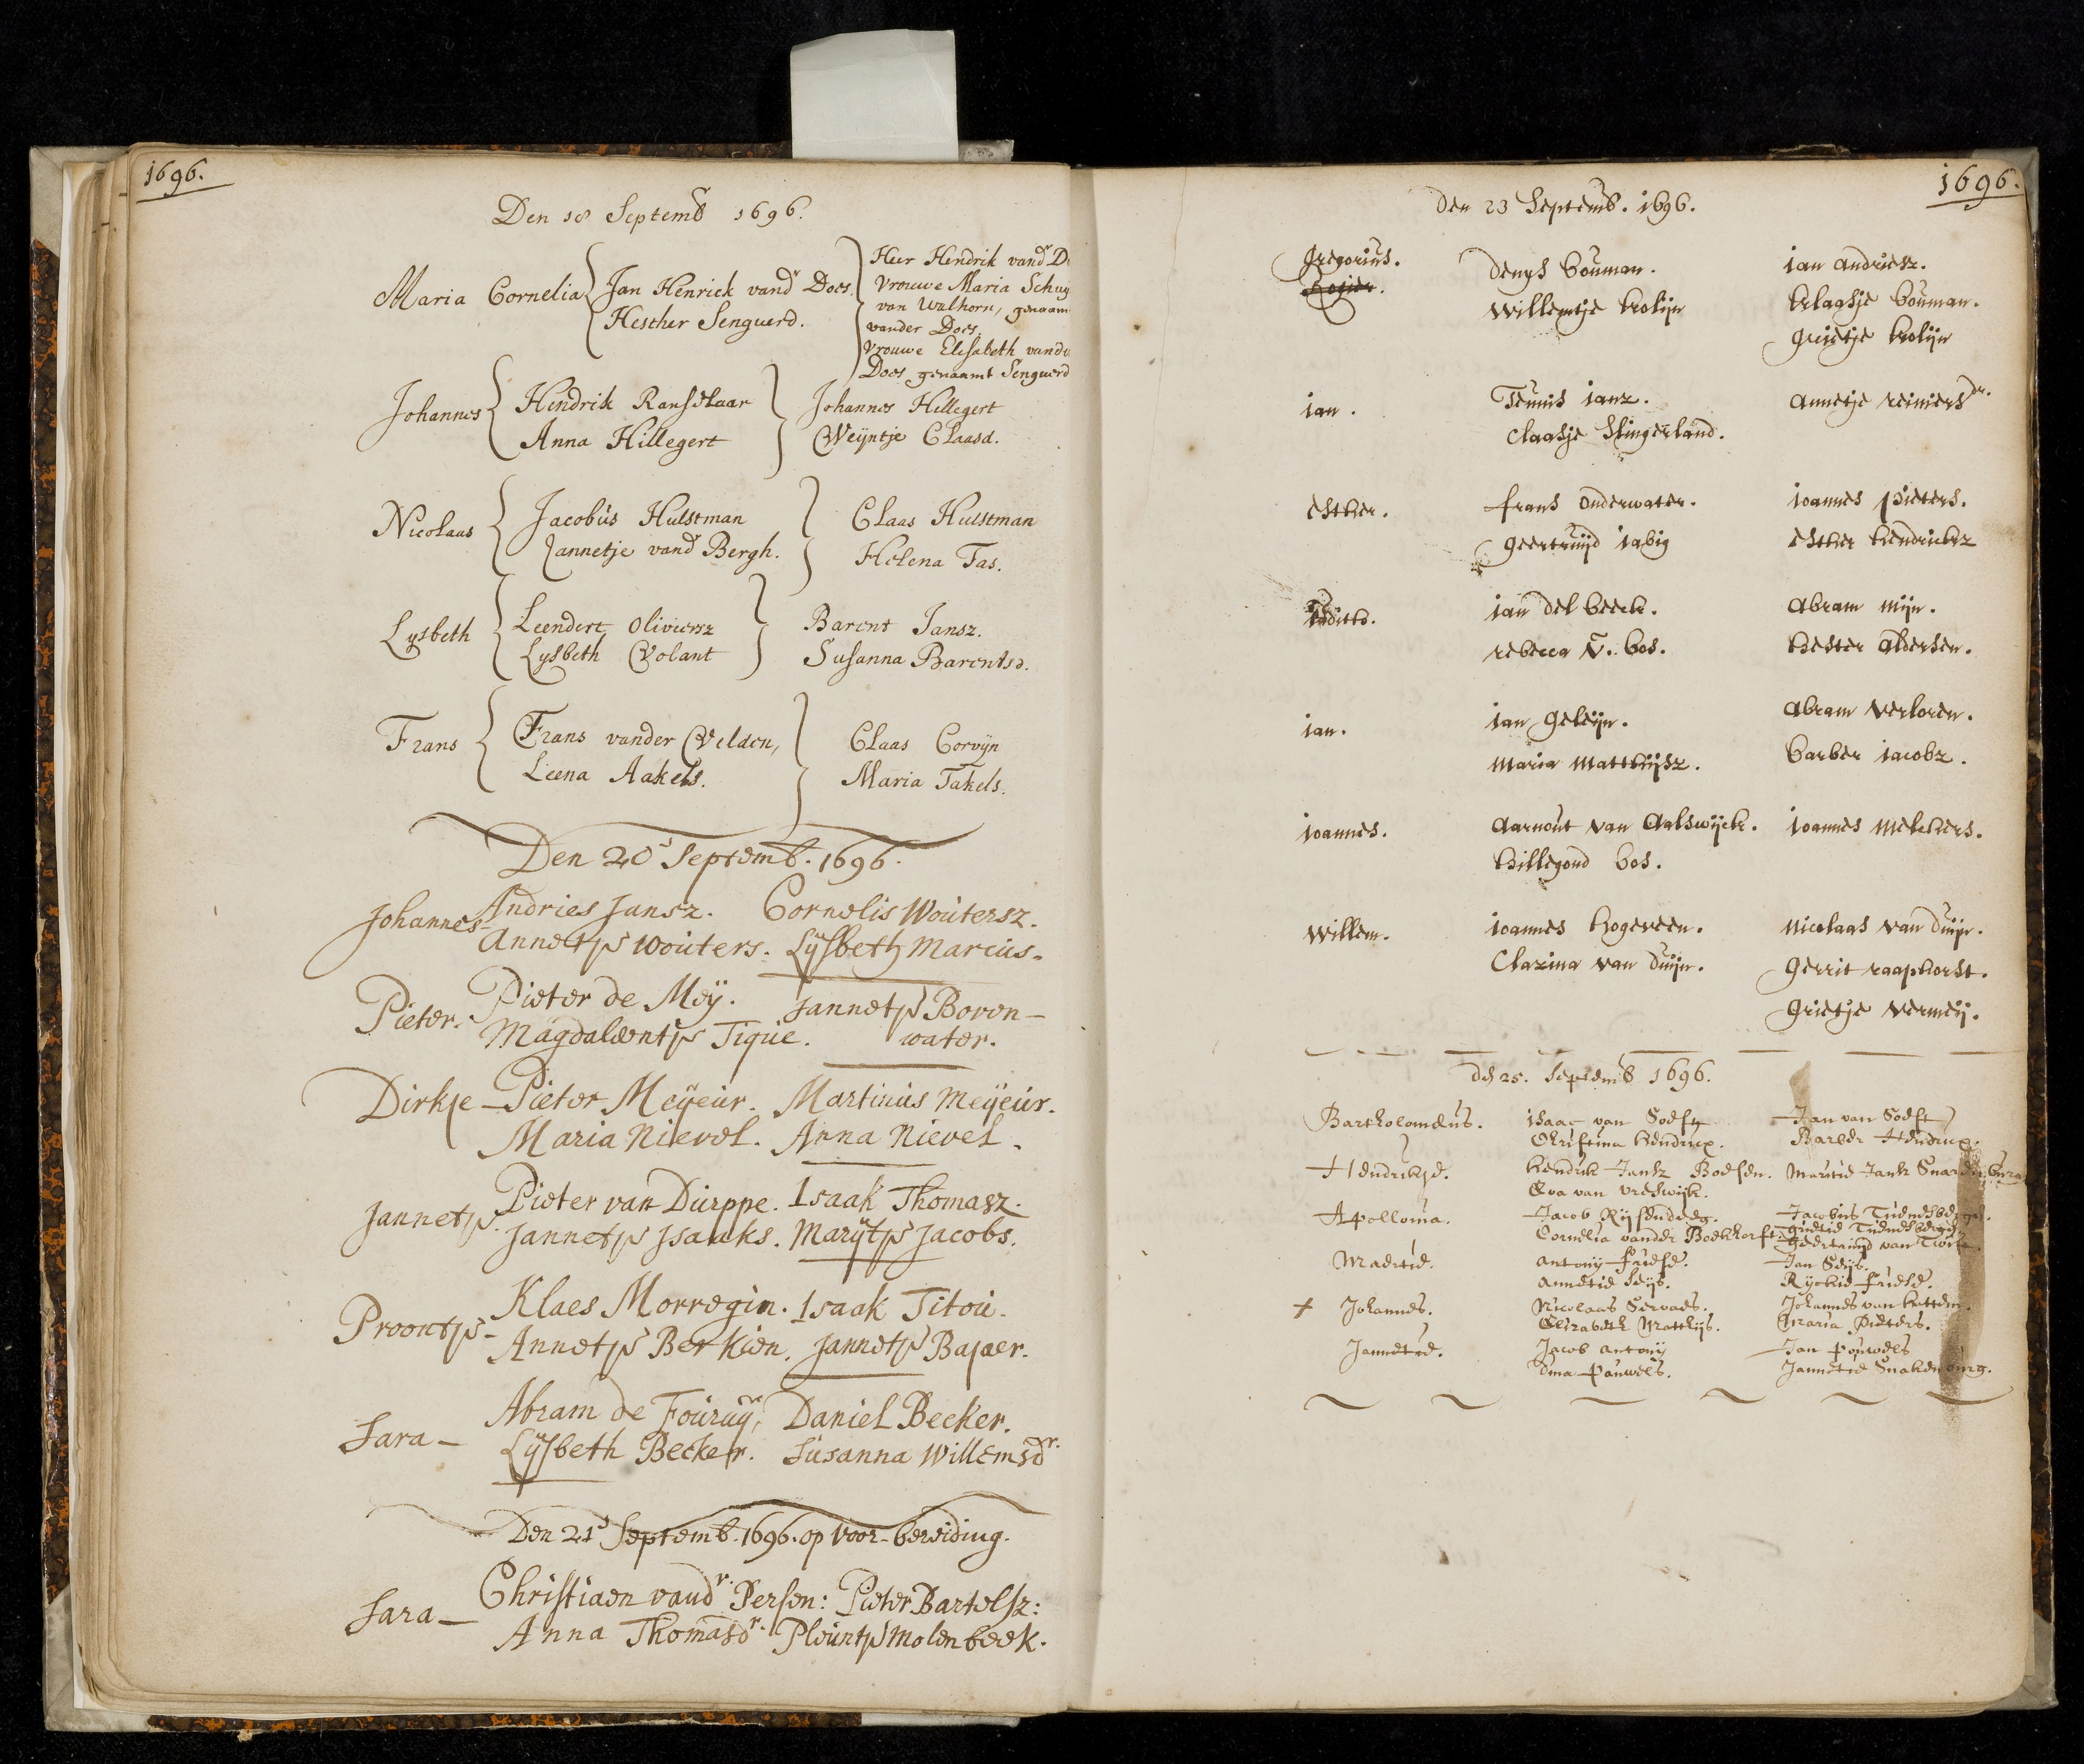 1696.
Den 18 Septemb 1696.
Maria Cornelia
Jan Henrick vandr Does.
Hesther Senguerd.
Heer Hendrik vandr D
Vrouwe Maria Schuy
van Walhorn, genaam
vander Does.
Vrouwe Elisabeth vand
Does genaamt Senguerd
Johannes
Hendrik Ranselaar
Anna Hillegert
Johannes Hillegert
Weijntje Claasd.
Nicolaas
Jacobus Hulstman
Jannetje vandr Bergh.
Claas Hulstman
Helena Tas.
Lysbeth
Leendert Oliviersz
Lysbeth Volant
Barent Jansz.
Susanna Barentsd.
Frans
Frans vander Velden,
Leena Aakels.
Claas Corvijn
Maria Takels.
Den 20s Septemb. 1696.
Johannes-
Andries Jansz.
Annetje Wouters.
Cornelis Woutersz.
Lijsbeth Marcus.
Pieter.
Pieter de Meij.
Magdaleentje Tique.
Jannetje Boven-
water.
Dirkje -
Pieter Meijeur.
Maria Nievel.
Martinus Meijeur.
Anna Nievel.
Jannetje.
Pieter van Durppe.
Jannetje Isaaks.
Isaak Thomasz.
Marijtje Jacobs.
Proontje-
Klaes Morregin.
Annetje Berkien.
Isaak Titou.
Jannetje Bajaer.
Sara -
Abram de Fouruij,
Lijsbeth Becker.
Daniel Becker.
Susanna Willemsdr.
Den 21s Septemb. 1696. op voor-bereiding.
Sara -
Christiaen vandr. Persen:
Anna Thomasdr.
Pieter Bartelsz:
Pleuntje Molenbeek.
1696.
den 23 Septemb. 1696.
gregorius.
Rogier.
denys bouman.
willemtje kolijn
ian andriesz.
klaasje bouman.
grietje kolijn
ian.
Teunis ianz.
claasje slingerland.
annetje reiniersdr.
esther.
frans onderwater.
geertruijd iabig
ioannes pieters.
esther hendrickz
iudith.
ian del beeck.
rebecca v. bos.
abram mijn.
hester aldersen.
ian.
ian geleijn.
maria matthijsz.
abram verloren.
barber iacobz.
ioannes.
aarnout van aalswijck.
hillegond bos.
ioannes melchers.
willem.
ioannes hogeveen.
clazina van duijn.
nicolaas van duijn.
gerrit raaphorst.
grietje vermeij.
den 25. Septemb 1696.
Bartholomeus.
isaac van Soest
Christina hendrix.
Jan van Soest
Barber Hendrix.
Hendrikje.
hendrik Jansz Boessen.
Eva van vreswijk.
Apollonia.
Cornelia vander Boekhorst.
Maertie.
antonij friese.
annetie Seijs.
Jan Seijs.
Rijckie friese.
+ Johannes.
Nicolaas Servaes.
Elizabeth Matthijs.
Johannes van hattem.
Maria Pieters.
Jannetie.
Jacob antonij
ema Pauwels.
Jan Pouwels
Jannetie Snakenburg.